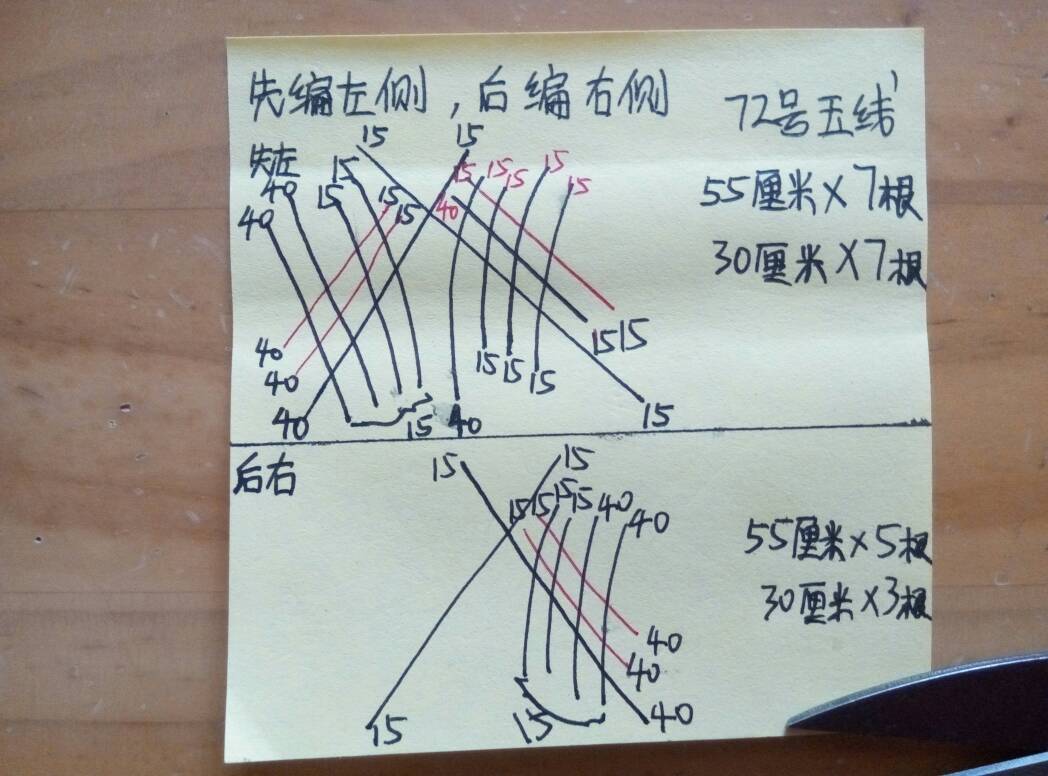 先编左侧，后编右侧
72号玉线
15 15
先左
40 15 15 15 15 15 15 15
40 15 15 40 15
55厘米×7根
30厘米×7根
40 15 15
40 15 15 15
40 15 40 15
后右
15 15
15 15 15 15 40 40
55厘米×5根
30厘米×3根
40
40
15 15 40